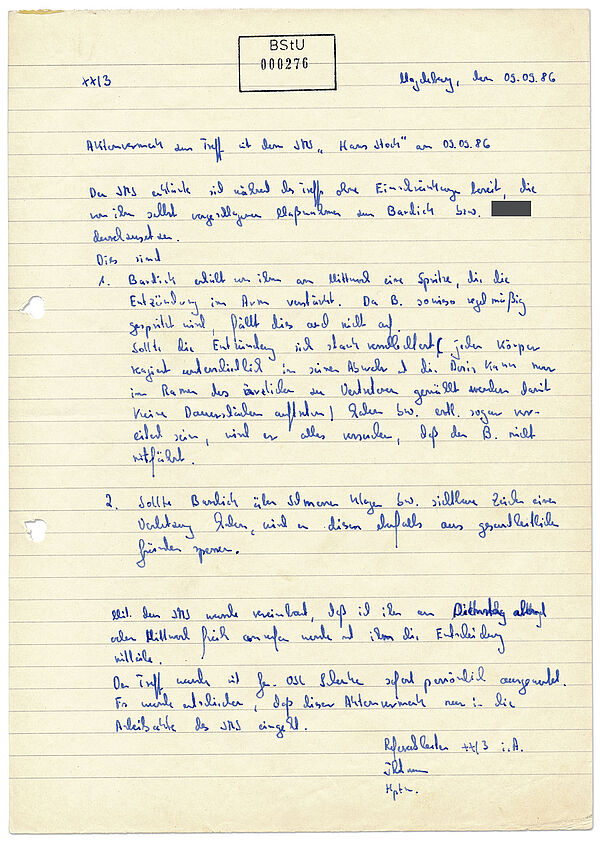 BStU
000276
XX/3 Magdeburg, den 09.09.86
Aktenvermerk zum Treff mit dem IMS „Hans Stock" am 09.09.86
Der IMS erklärte sich während des Treffs ohne Einschränkungen bereit, die
von ihm selbst vorgeschlagenen Maßnahmen zum Bardick bzw.
durchzusetzen.
Dies sind
1. Bardick erhält von ihm am Mittwoch eine Spritze, die die
Entzündung im Arm verstärkt. Da B. sowieso regelmäßig
gespritzt wird, fällt dies auch nicht auf.
Sollte die Entzündung sich stark verschlechtert (jeder Körper
reagiert unterschiedlich in seiner Abwehr und die Dosis kann nur
im Ramen des ärztlichen zu Vertretenen gewählt werden damit
keine Dauerschäden auftreten) haben bzw. evtl. sogar ver-
eitert sein, wird er alles versuchen, daß der B. nicht
mitfährt.
2. Sollte Bardick über Schmerzen klagen bzw. sichtbare Zeichen einer
Verletzung haben, wird er diesen ebenfalls aus gesundheitlichen
Gründen sperren.
Mit dem IMS wurde vereinbart, daß ich ihn am
oder Mittwoch früh anrufen werde und ihm die Entscheidung
mitteile.
Der Treff wurde mit Gen. OSL Schenke sofort persönlich ausgewertet.
Es wurde entschieden, daß dieser Aktenvermerk nur in die
Arbeitsakte des IMS eingeht.
Referatsleiter XX/3 i.A.
Hptm.